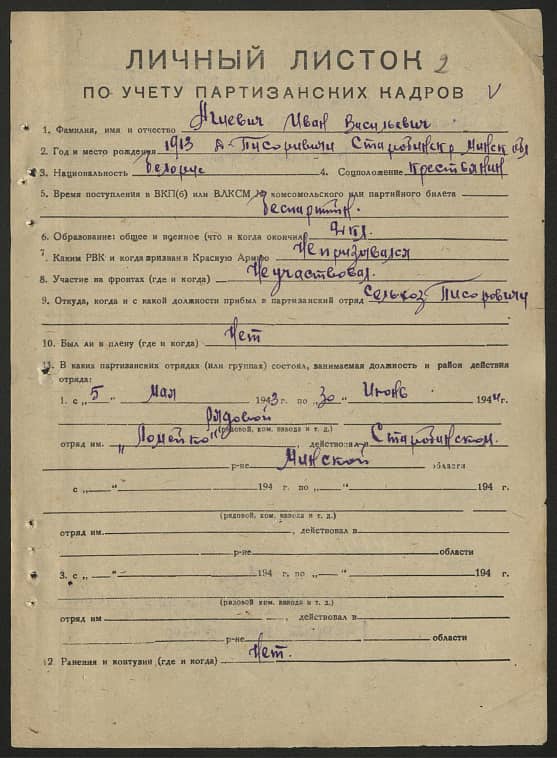 ЛИЧНЫЙ ЛИСТОК 2
ПО УЧЕТУ ПАРТИЗАНСКИХ КАДРОВ V
1. Фамилия, имя и отчество Иван Васильевич
2. Год и место рождения 1913 д-Писоривичи Старобинск р Минск обл
3. Национальность Белорус 4. Соцположение Крестьянин
5. Время поступления в ВКП(б) или ВЛКСМ № комсомольского или партийного билета
Беспартийн.
6. Образование: общее и военное (что и когда окончил
7. Каким РВК и когда призван в Красную Армию Не призывался
8. Участие на фронтах (где и когда) Не участвовал.
9. Откуда, когда и с какой должности прибыл в партизанский отряд Сельхоз-Писоровичи
10. Был ли в плену (где и когда) Нет
11. В каких партизанских отрядах (или группах) состоял, занимаемая должность и район действия
отряда:
1. с „5“ Мая 1943 г. по „30“ Июнь 1944 г.
Рядовой
(рядовой, ком. взвода и т. д.)
отряд им. „Ломейко“, действовал в Старобинском.
р-не Минской области
с „ “ 194 г. по „ “ 194 г.
(рядовой, ком. взвода и т. д.)
отряд им. , действовал в
р-не области
3. с „ “ 194 г. по „ “ 194 г.
(рядовой, ком. взвода и т. д.)
отряд им , действовал в
р-не области
12 Ранения и контузии (где и когда) Нет.